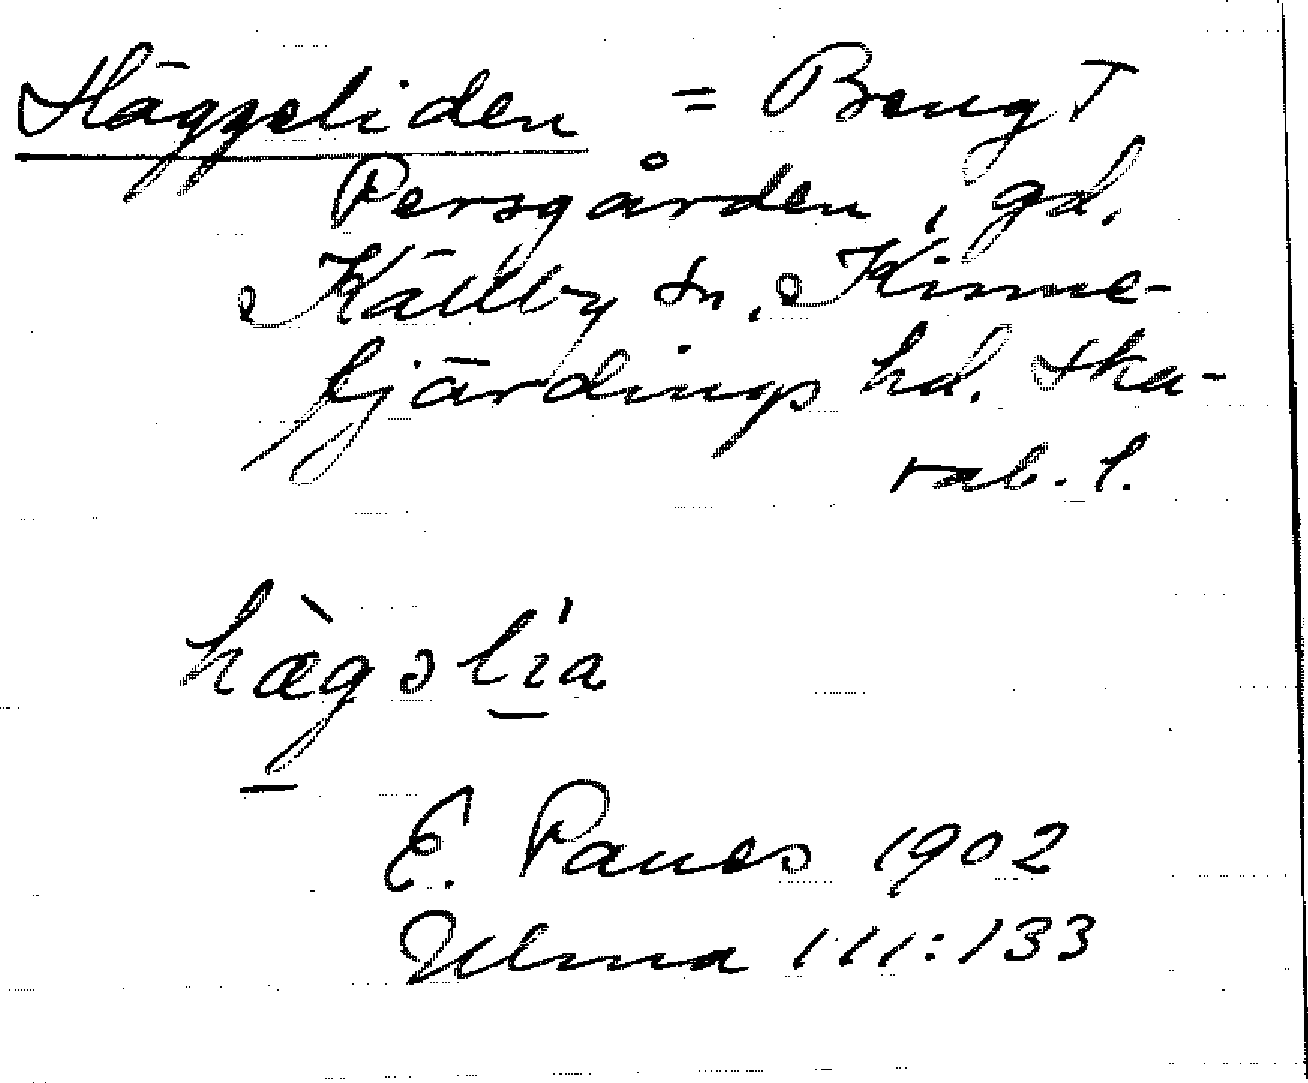 Häggeliden = Bengt
Persgården, gd.
Källby sn, Kinne-
fjärdings hd. Ska-
rab. l.
hæ̀gəlía
E. Paues 1902
Ulma 111:133